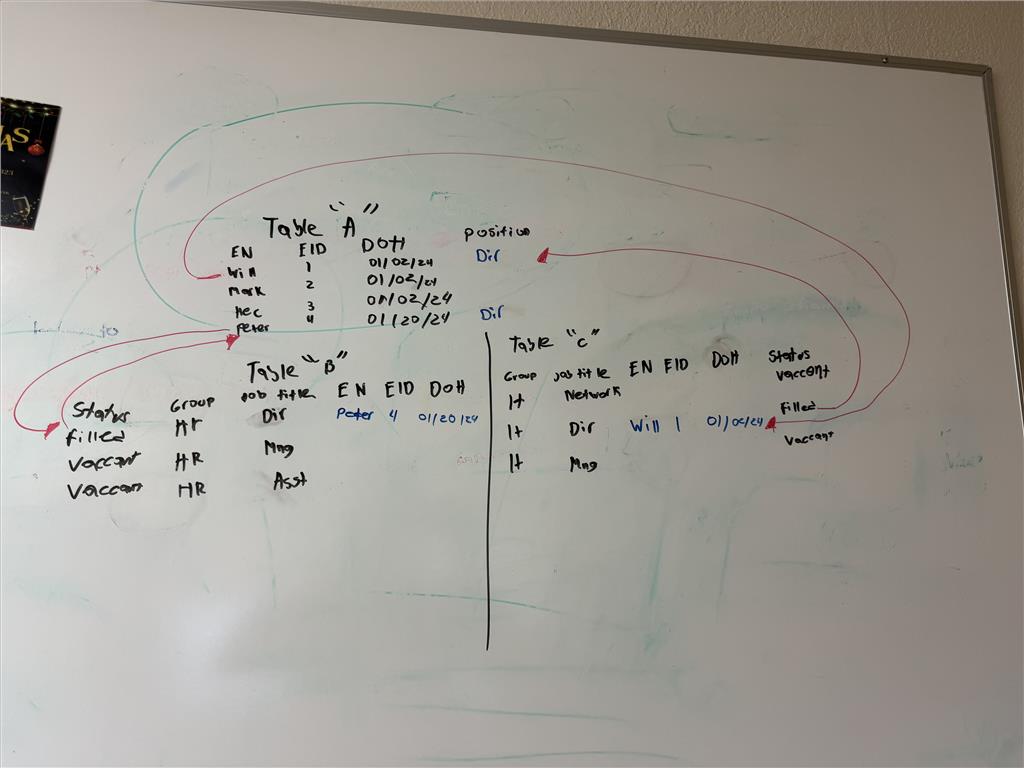 Table "A"
EN EID DOH position
Will 1 01/02/24 Dir
Mark 2 01/02/24
Hec 3 01/02/24
Peter 4 01/20/24 Dir
Table "B"
Status Group job title EN EID DOH
filled HR Dir Peter 4 01/20/24
Vaccant HR Mng
Vaccant HR Asst
Table "C"
Group job title EN EID DOH Status
It Network vaccant
It Dir Will 1 01/02/24 filled
It Mng Vaccant